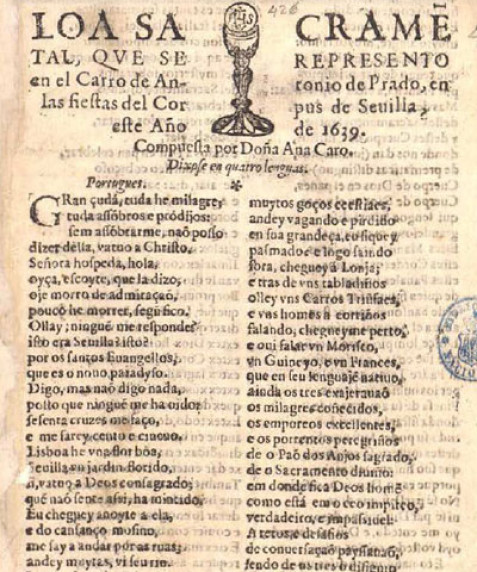 LOA SACRAMẼ
TAL, QVE SE REPRESENTO
en el Carro de Antonio de Prado, en
las fiestas del Corpus de Seuilla,
este Año de 1639.
Compuesta por Doña Ana Caro.
Dixose en quatro lenguas.
Portugues.
GRan çudá, tuda he milagre,
tuda assõbros e pródijos:
sem assõbrarme, naõ posso
dizer della, vatuo a Christo.
Señora hospeda, hola,
oyça, escoyte, que la dizo,
oje morro de admiraçaõ,
pouco he morrer, segifico.
Ollay; ninguẽ me respondes
isto era Seuilla? isto?
por os santos Euangellos,
que es o nouo paradyso.
Digo, mas naõ digo nada,
posto que ninguẽ me ha oido:
sesenta cruzes me faço,
e me farey cento e cincuo.
Lisboa he vna flor boa,
Seuilla vn jardin florido,
vatuo a Deos consagrado;
quẽ naõ sente assi, ha mintido.
Eu cheguey anoyte a ela,
e do cansanço mofino,
me say a andar por as ruas;
andey muytas, vi seu rio.
muytos goços ceestiaes,
andey vagando e pirdido
en sua grandeça, eu fiquey
pasmado e logo saindo
fora, cheguey á Lonja;
e tras de vns tabladiños
olley vns Carros Triũfaes,
e vns homẽs e corriños
falando, chegueyme perto,
e oui falar vn Morisco,
vn Guineyo, e vn Frances,
que en seu lenguaje natiuo,
ainda os tres exajerauaõ
os milagres coñecidos,
os emporeos excellentes,
e os portentos peregriños
de o Paõ dos Anjos sagrado,
de o Sacramento diuino:
em donde fica Deos homẽ
como está em o ceo impireo,
verdadeiro, e impassiuel:
A tetos, e desafios
de conuersaçaõ paysanaõ,
sendo de os tres o disiguro